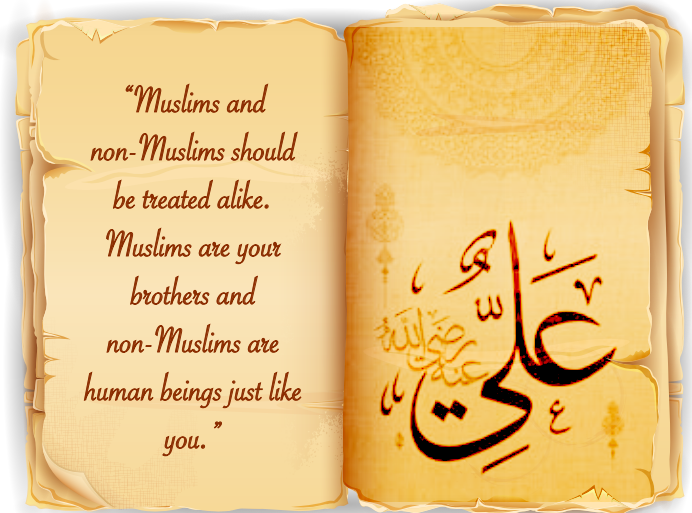 “Muslims and
non-Muslims should
be treated alike.
Muslims are your
brothers and
non-Muslims are
human beings just like
you.”
عَلِيٌّ
رضي الله عنه